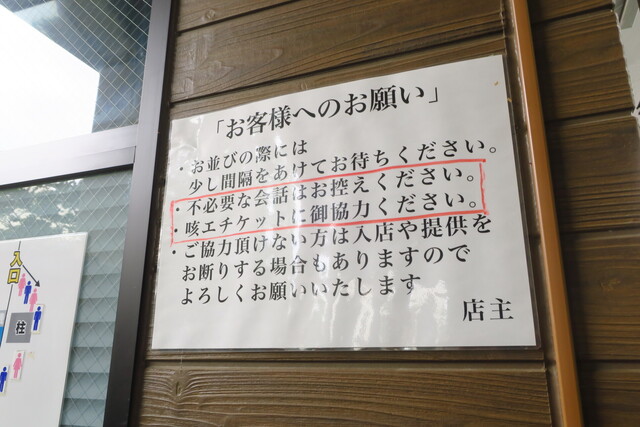 「お客様へのお願い」
・お並びの際には
少し間隔をあけてお待ちください。
・不必要な会話はお控えください。
・咳エチケットに御協力ください。
・ご協力頂けない方は入店や提供を
お断りする場合もありますので
よろしくお願いいたします
店主
入口
柱